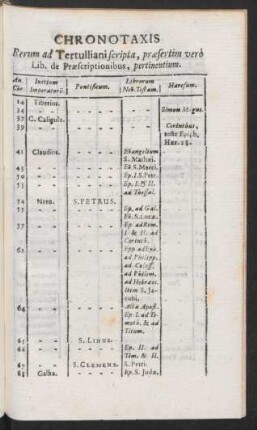 CHRONOTAXIS
Rerum ad Tertulliani scripta, præsertim verò
Lib. de Præscriptionibus, pertinentium.
An. Chr. Initium Imperatorū. Pontificum. Librorum Nov. Testam. Hæresum.
14 Tiberius.
34 Simon Magus.
37 C. Caligula.
39 Cerinthus,
teste Epiph.
Hær. 28.
41 Claudius. Evangelium
S. Matthæi.
Ev. S. Marci.
Ep. I. S. Petr.
Ep. I. & II.
ad Thessal.
54 Nero. S. PETRUS.
Ep. ad Gal.
Ev. S. Lucæ.
57 Ep. ad Rom.
I. & II. ad
Corinth.
Epp. ad Eph.
ad Philipp.
ad Coloss.
ad Philem.
ad Hebræos
Item S. Ja-
cobi.
64 Acta Apost.
Ep. I. ad Ti-
moth. & ad
Titum.
65 S. LINUS.
Ep. II. ad
Tim. & II.
67 S. CLEMENS. S. Petri.
68 Galba. Ep. S. Judæ.